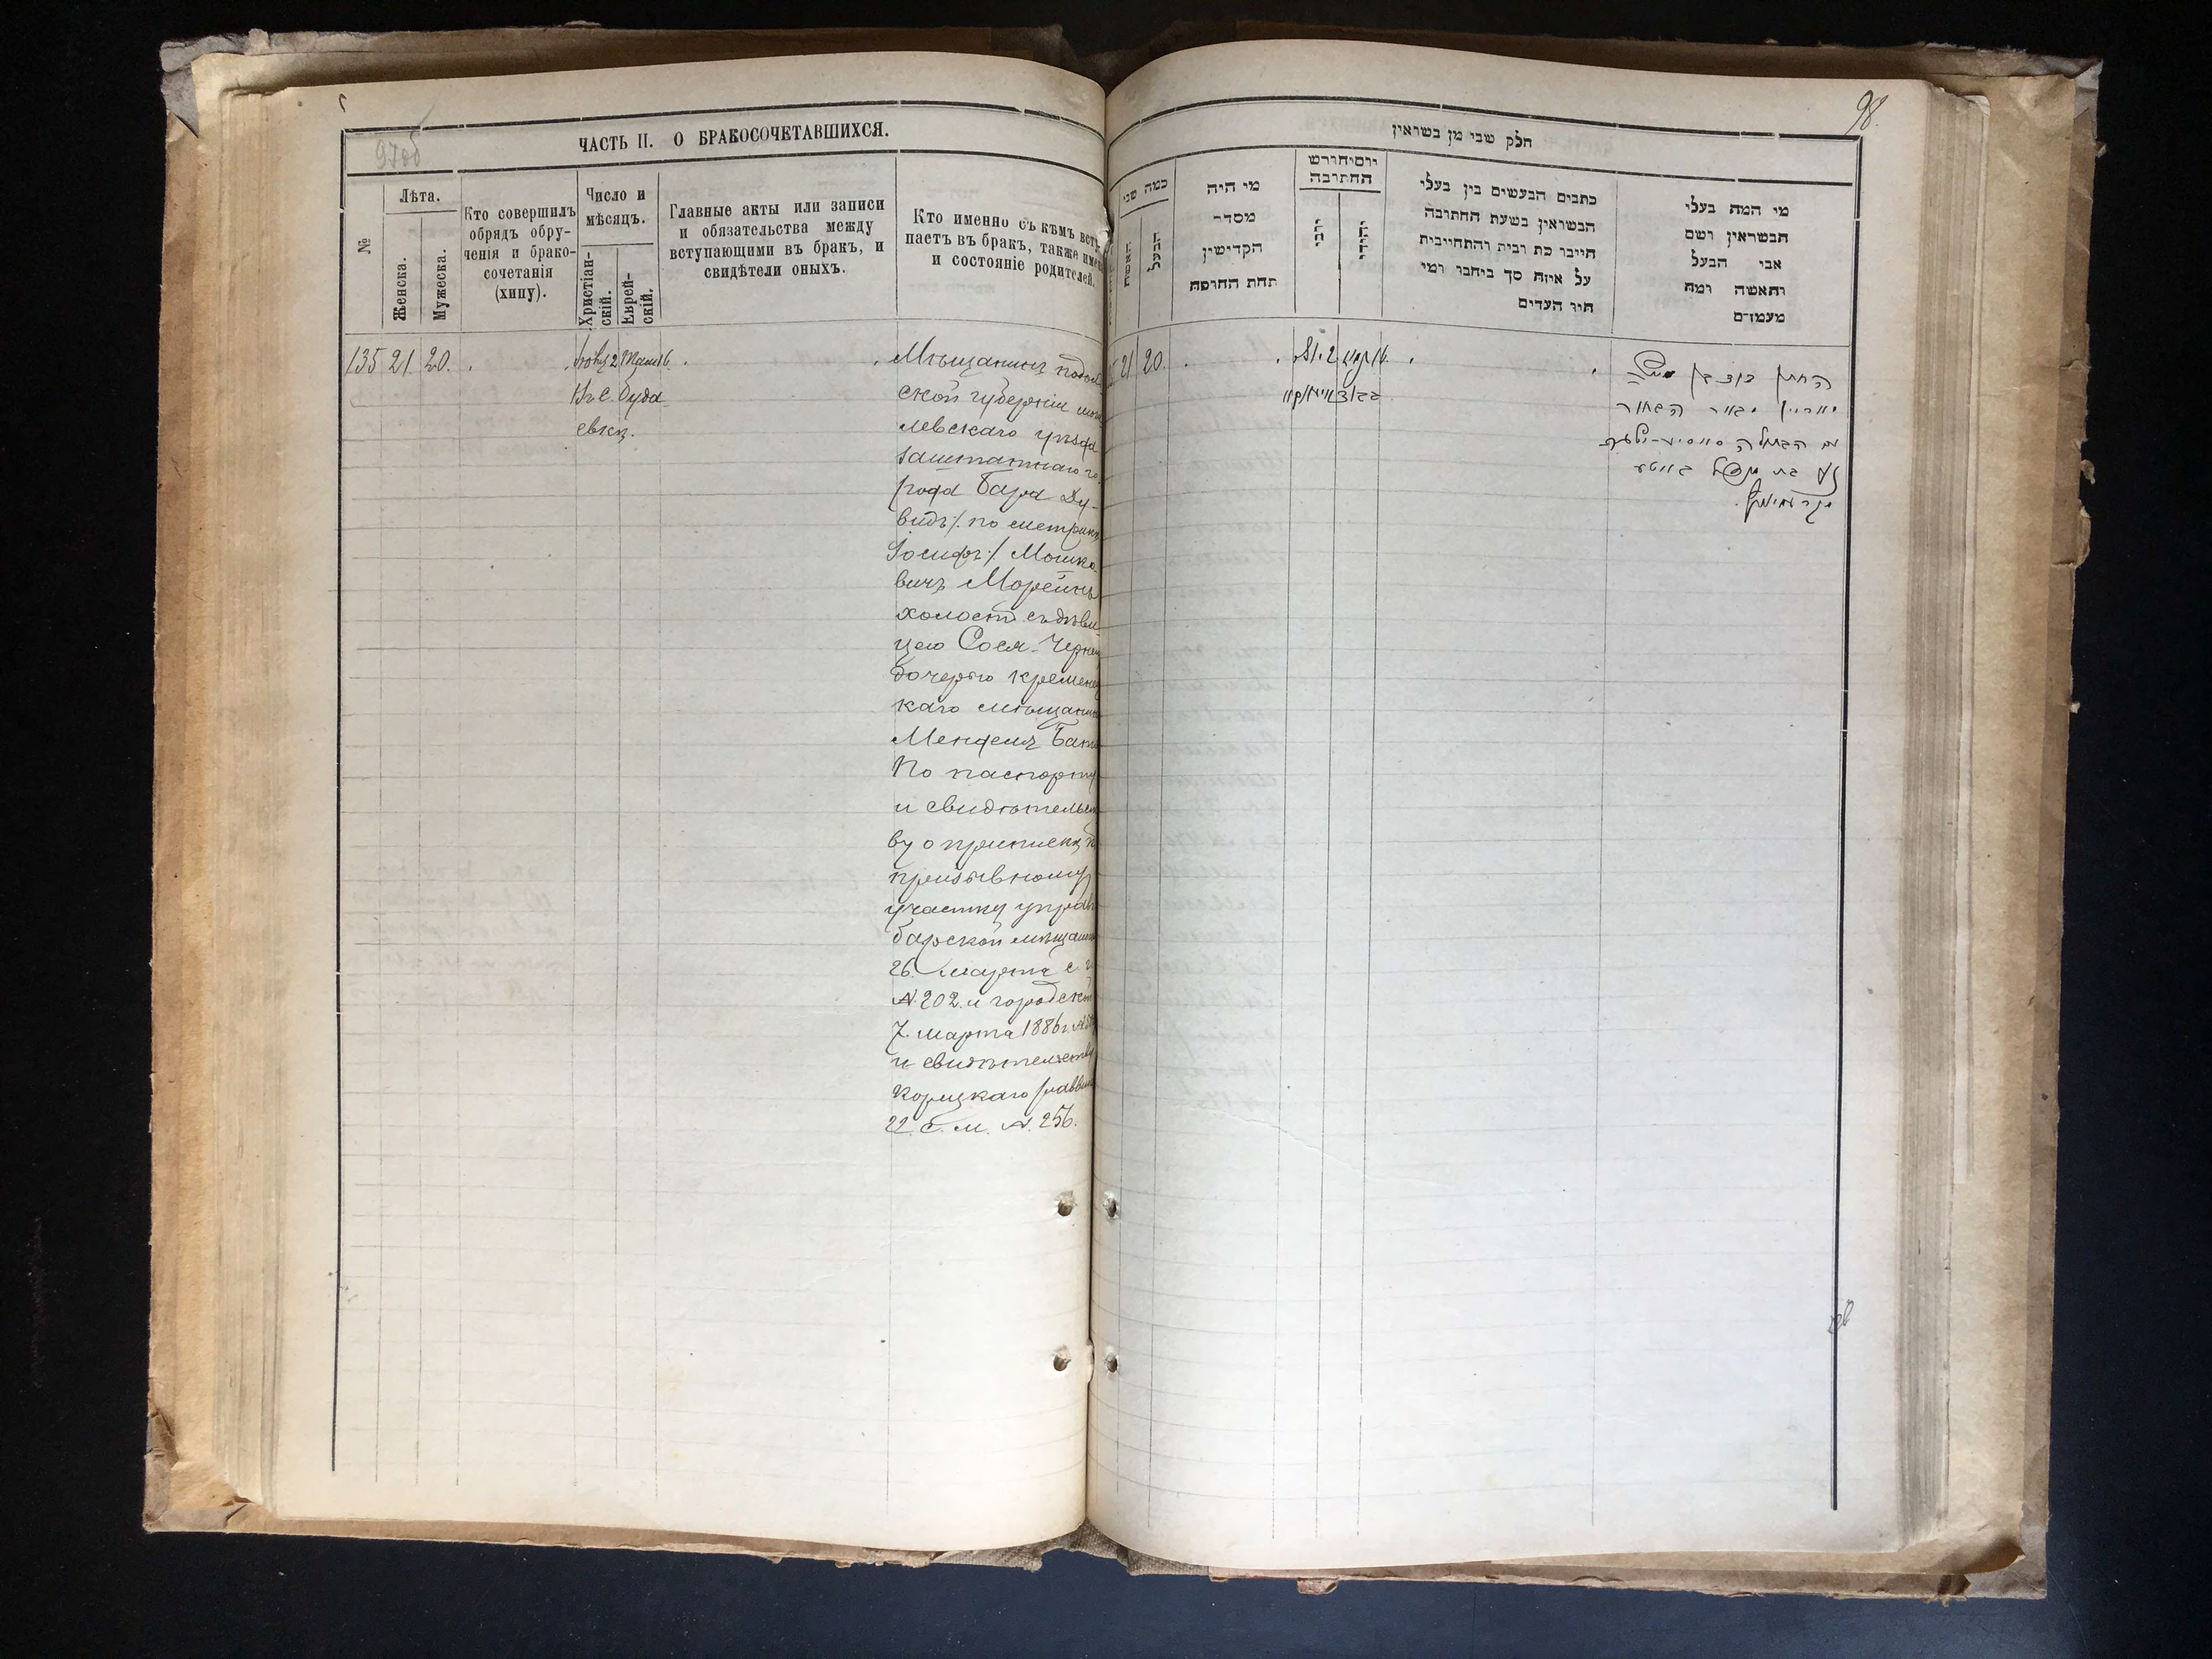 97об
ЧАСТЬ II. О БРАКОСОЧЕТАВШИХСЯ.
№
Лѣта.
Женска.
Мужеска.
Кто совершилъ
обрядъ обру-
ченія и брако-
сочетанія
(хипу).
Число и
мѣсяцъ.
Христіан-
скій.
Еврей-
скій.
Главные акты или записи
и обязательства между
вступающими въ брак, и
свидѣтели оныхъ.
Кто именно съ кѣмъ всту
паетъ въ брак, также имена
и состояніе родителей.
135 21. 20.
Въ с. Буда
евкѣ.
Мѣщанинъ подоль
ской губерніи моги
левскаго уѣзда
заштатнаго го
рода Бара Ду-
видъ /. по метрикѣ
Іосифъ ./ Мошко
вичъ Морейнъ
холостъ съ дѣви
цею Сося-Черней
дочерью кременец
каго мѣщанина
Менделя
По паспорту
и свидѣтельст
ву о припискѣ къ
призывному
участку управ
барской мѣщанск
26. марта с. г.
N. 202. и городской
7. марта 1886 г.
и свидѣтельству
корецкаго раввина
22. с. м. N. 256.
98.
חלק שבי מן בשראין
כמה שבי
האשה
הבעל
מי היה
מסדר
הקדישין
תחת החופה
יום וחודש
החתובה
כתבים הבעשים בין בעלי
הבשואין בשעת החתובה
חייבו כת רבית והתחייבית
על איזה סך ביחבו ומי
היו העדים
מי המה בעלי
הבשראין ושם
אבי הבעל
והאשה ומה
מעמדם
21 20.
החתן דוד בן משה
מאריין יבאר הבחור
עם הבתולה סאסיע-
בת מענדל